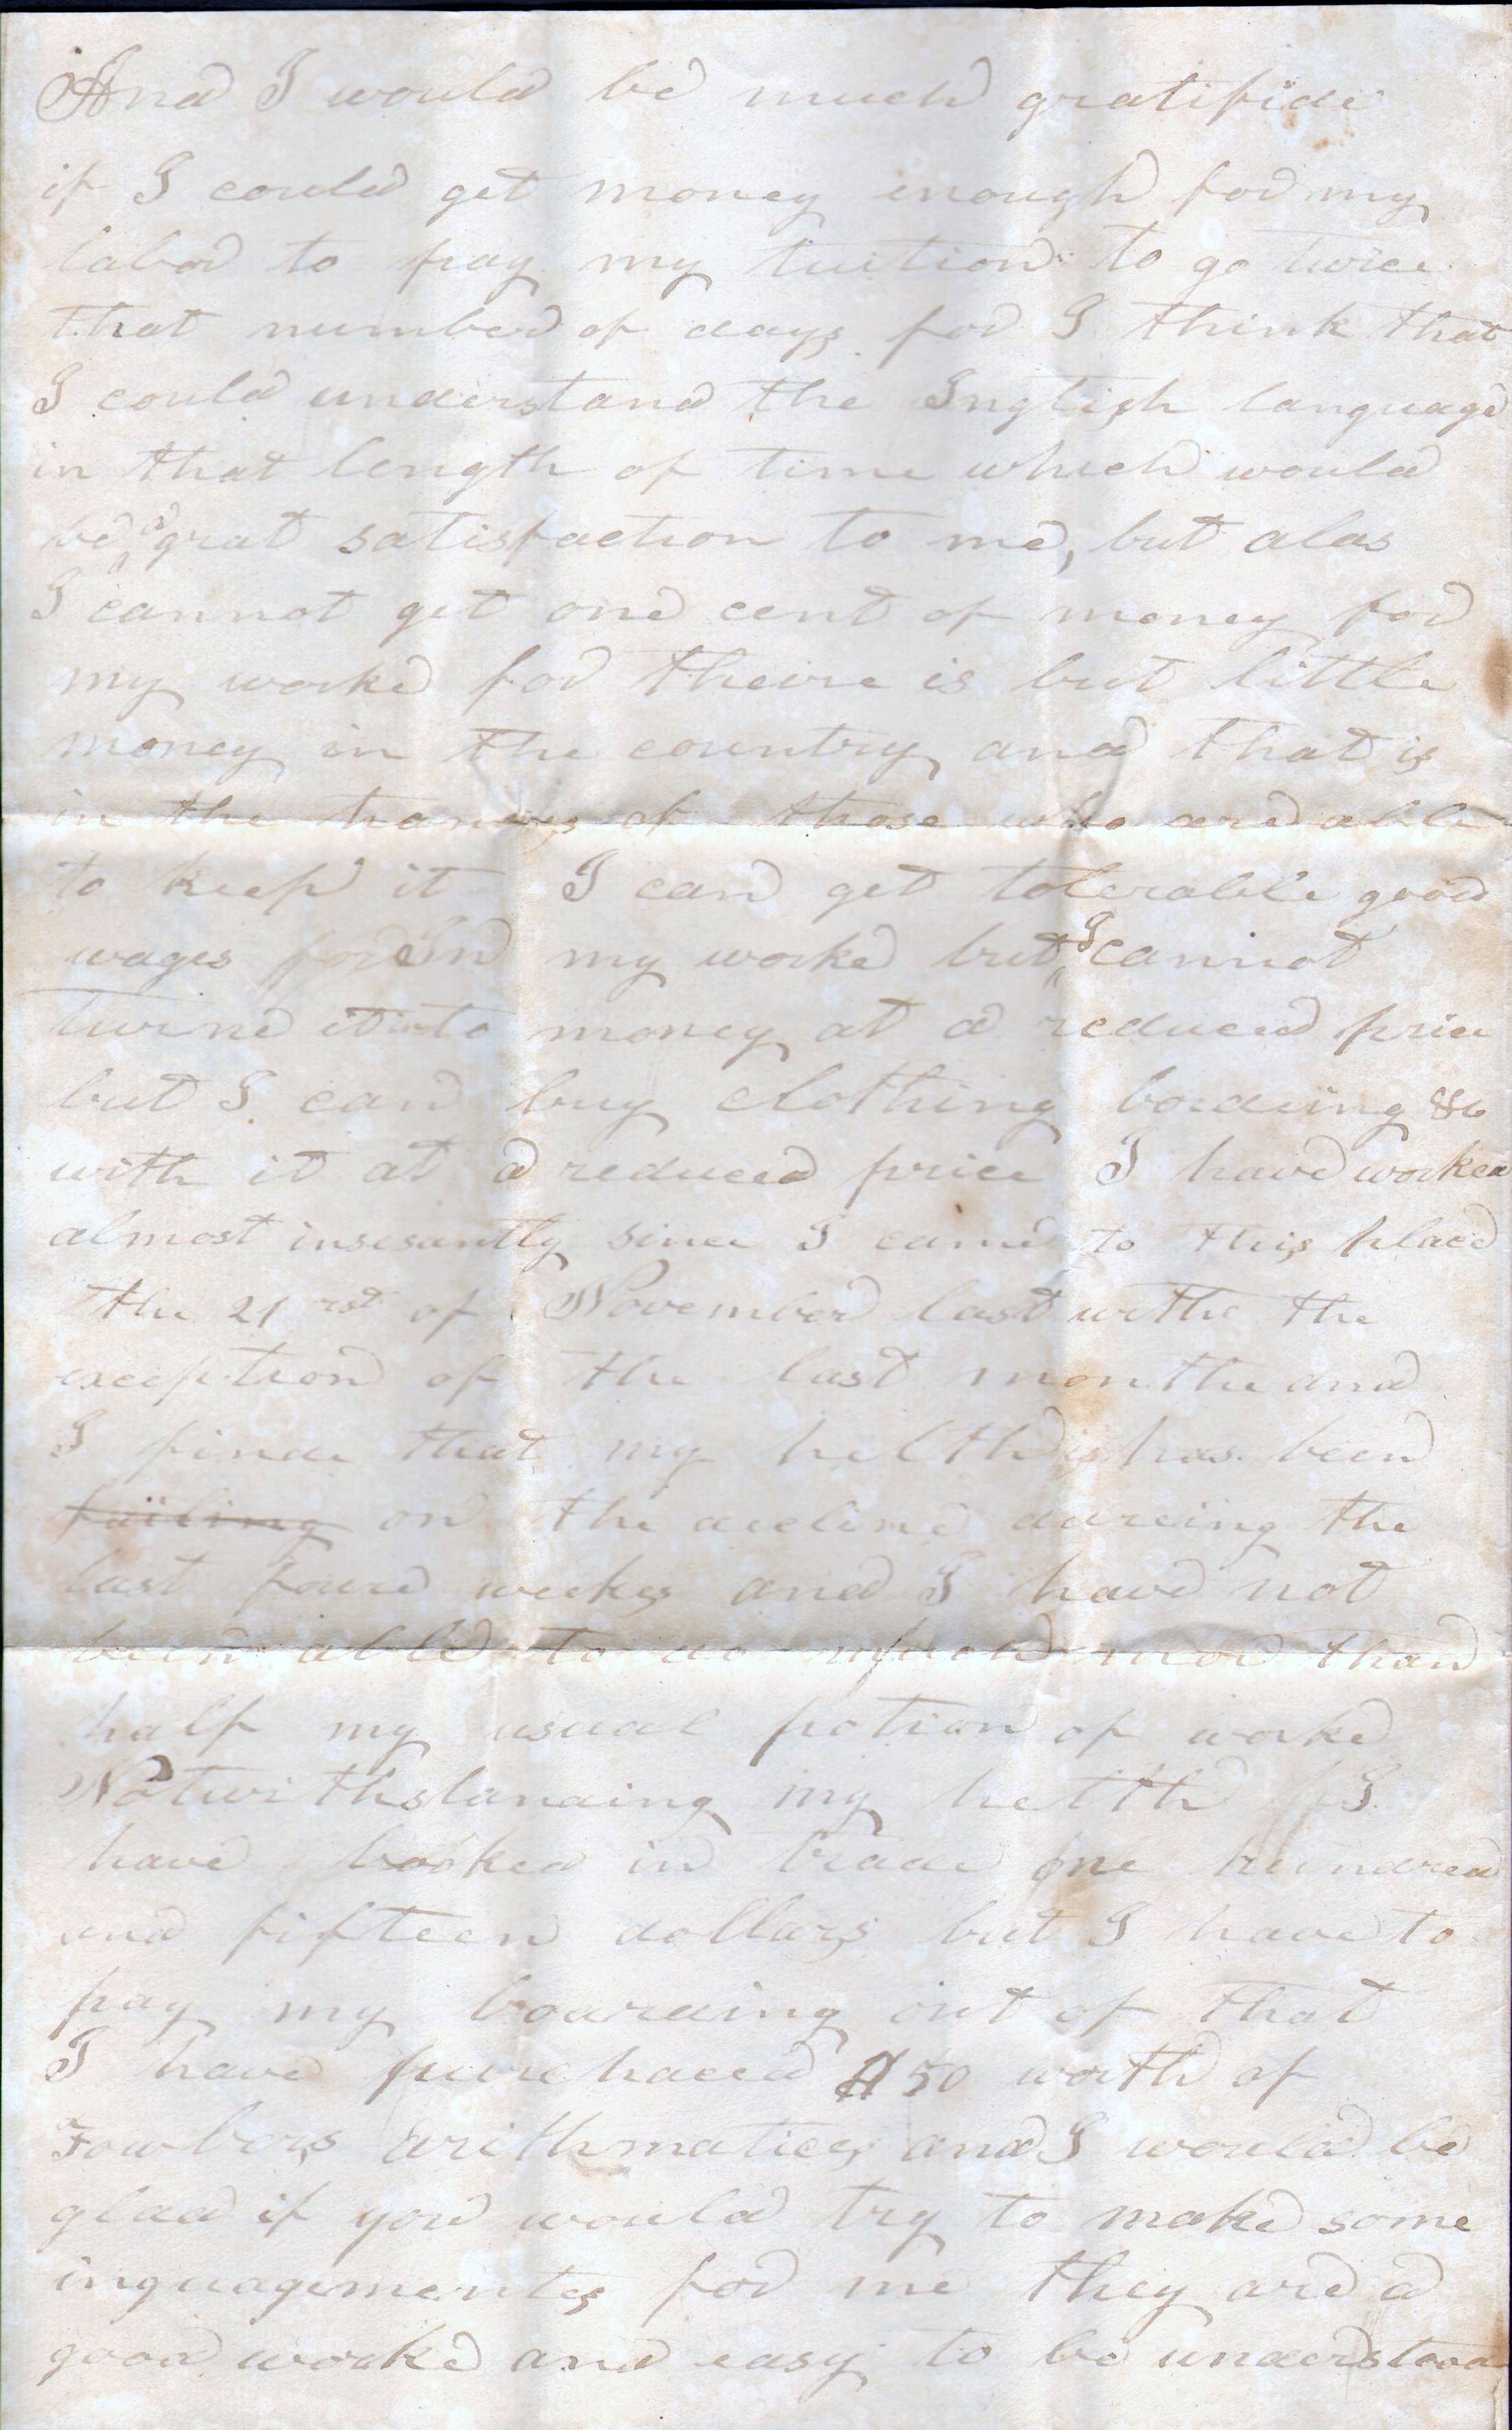 And I would be much gratifide
if I could get money inough for my
labor to pay my tuition to go twice
that number of days for I think that
I could understand the Inglish language
in that length of time which would
be a grat satisfaction to me, but alas
I cannot get one cent of money for
my worke for theire is but little
money in the country and that is
in the hands of those who are able
to keep it I can get tolerable good
wages for my worke but I cannot
turne it into money at a reduced price
but I can buy clothing bording &c
with it at a reduced price I have worked
almost insesantly since I came to this place
the 21rst of November last withe the
exception of the last monthe and
I finde that my helth has been
failing on the decline dureing the
last foure weekes and I have not
been able to do much more than
half my usual potion of worke
Notwithstanding my helth I
have booked in trade one hundred
and fifteen dollars but I have to
pay my boardding out of that
I have purchaced $50 worth of
Fowlers arithmatices and I would be
glad if you would try to make some
inguagementes for me they are a
good worke and easy to be understood